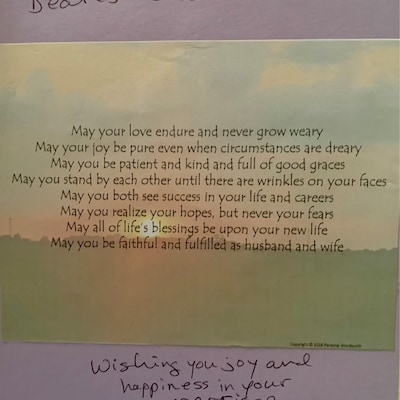 May your love endure and never grow weary
May your joy be pure even when circumstances are dreary
May you be patient and kind and full of good graces
May you stand by each other until there are wrinkles on your faces
May you both see success in your life and careers
May you realize your hopes, but never your fears
May all of life's blessings be upon your new life
May you be faithful and fulfilled as husband and wife
Copyright © 2018 Personal Wordsmith
Wishing you joy and
happiness in your